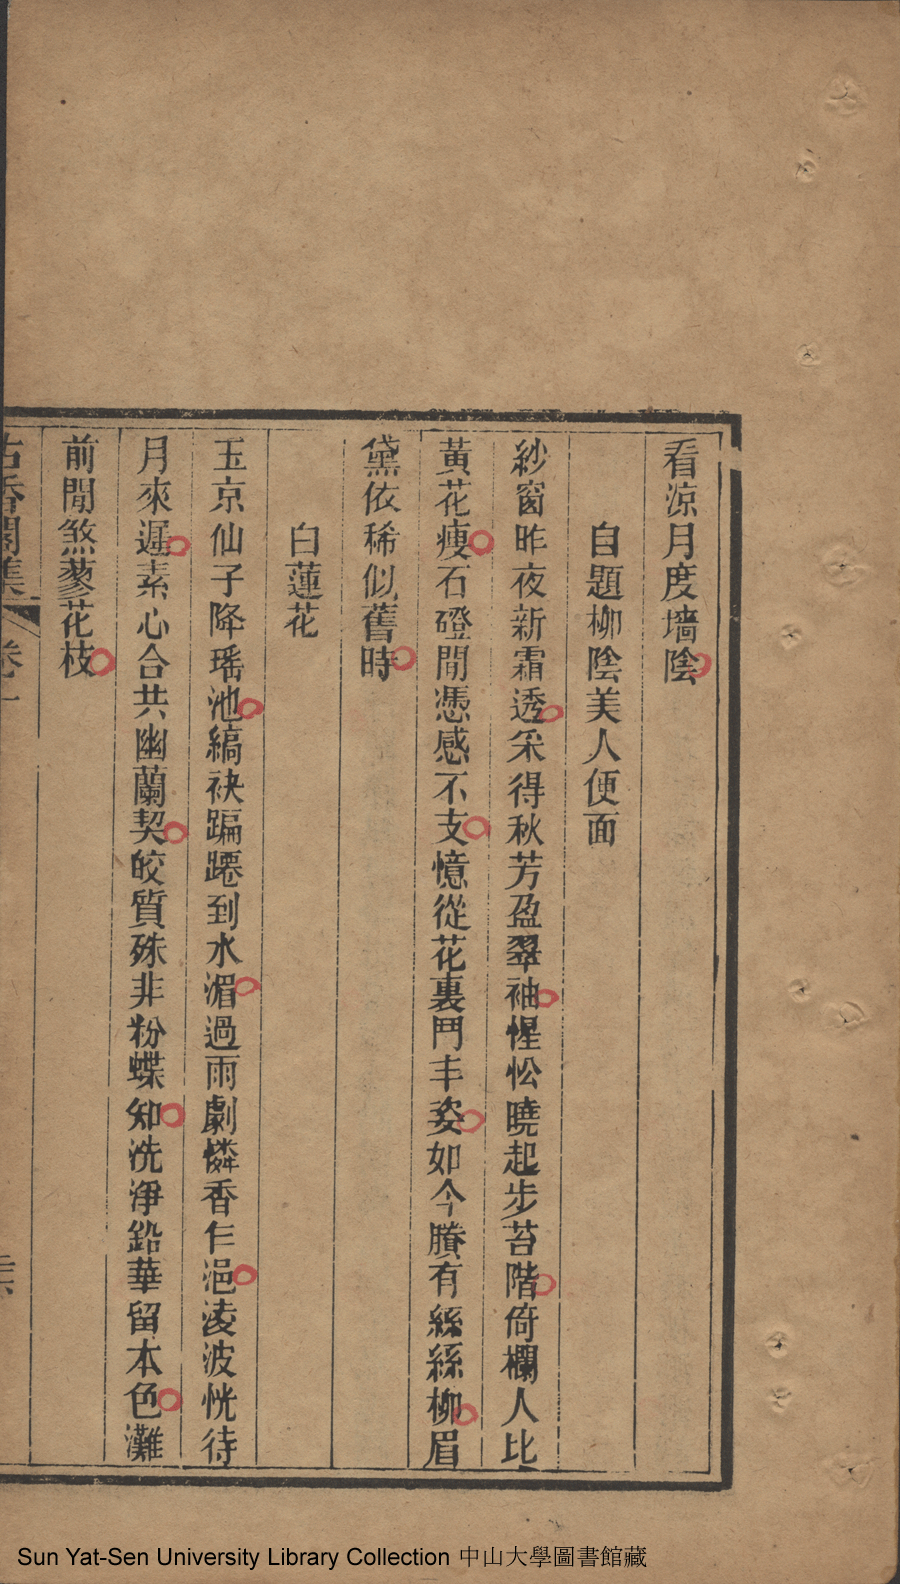 看涼月度墻陰
自題柳陰美人便面
紗窗昨夜新霜透采得秋芳盈翠袖惺忪曉起步苔階倚欄人比
黃花瘦石磴閒憑感不支憶從花裏鬥丰姿如今賸有絲絲柳眉
黛依稀似舊時
白蓮花
玉京仙子降瑶池縞袂蹁躚到水湄過雨劇憐香乍浥淩波恍待
月來遲素心合共幽蘭契皎質殊非粉蝶知洗淨鉛華留本色灘
前閒煞蓼花枝
古香閣集
卷一
Sun Yat-Sen University Library Collection 中山大學圖書館藏